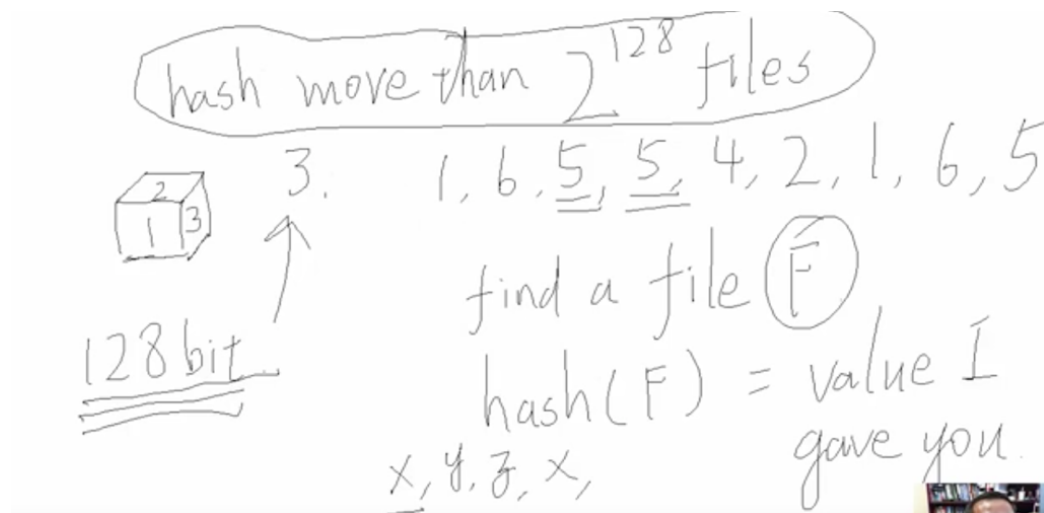 hash more than 2^128 files
3.
1, 6, 5, 5, 4, 2, 1, 6, 5
2
1 3
find a file F
128 bit
hash(F) = value I
gave you.
x, y, z, x,